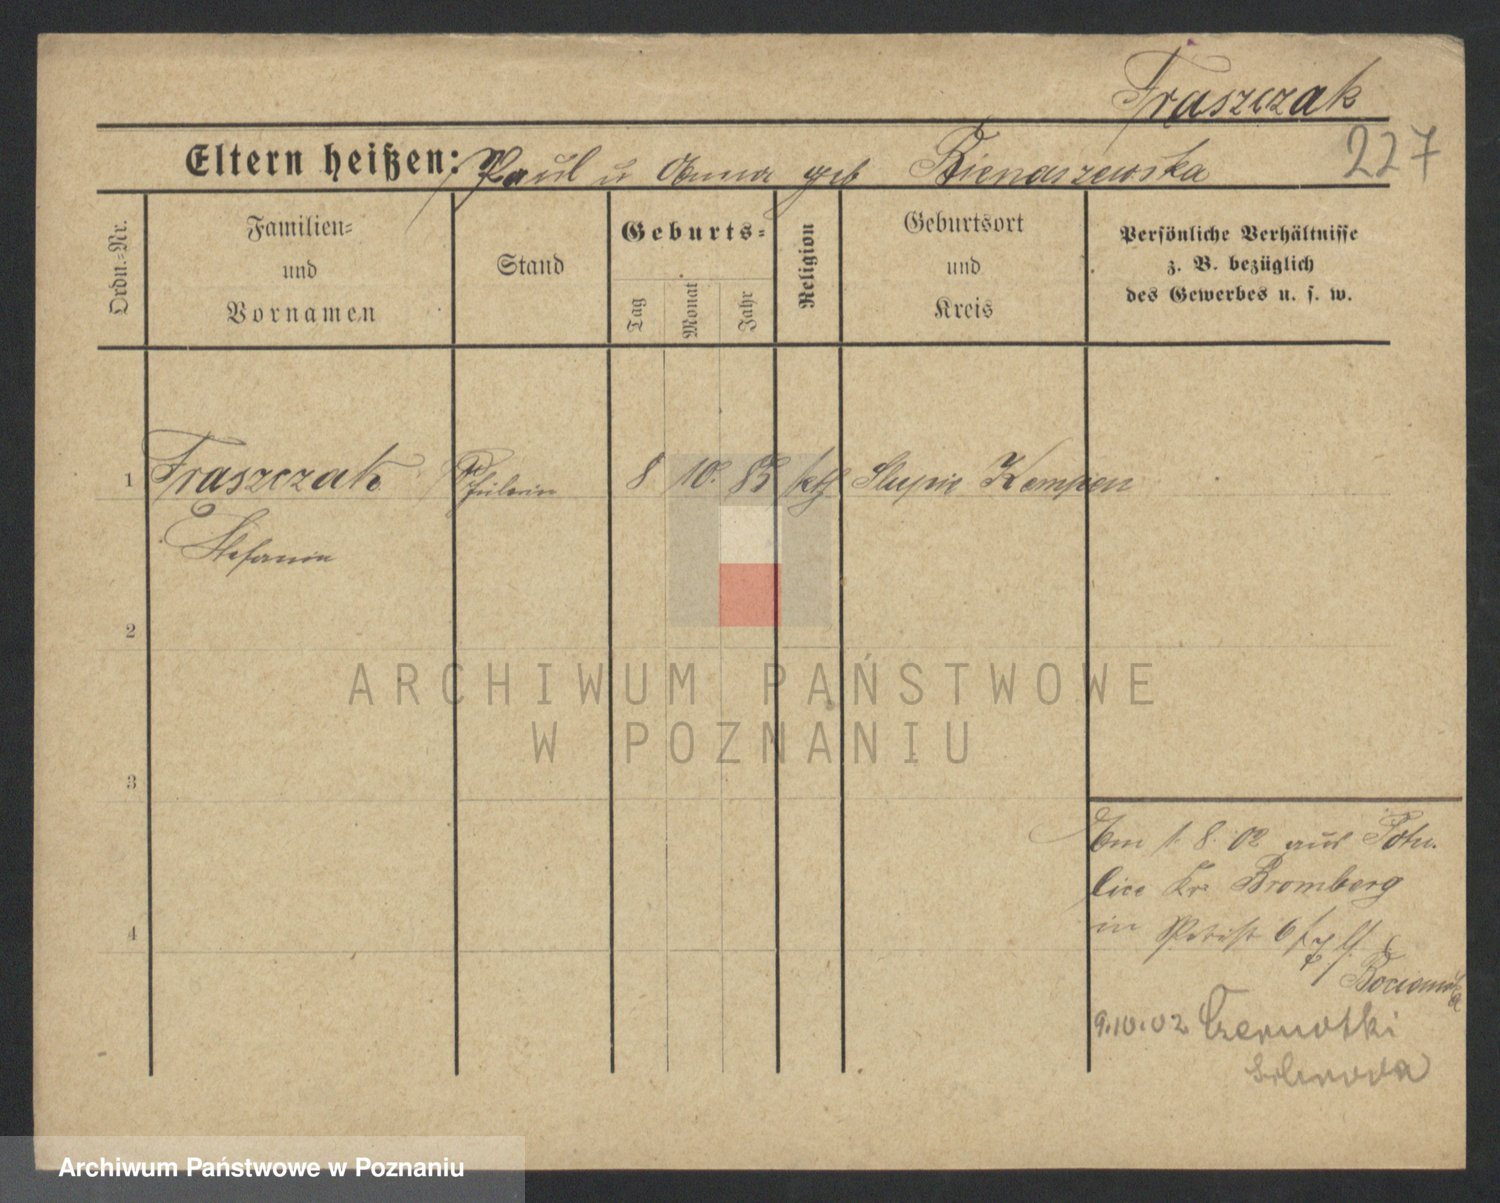 Fraszczak
227
Eltern heißen: Paul u Anna geb Bienaszewska
Ordn.-Nr.
Familien-
und
Vornamen
Stand
Geburts-
Tag
Monat
Jahr
Religion
Geburtsort
und
Kreis
Persönliche Verhältnisse
z. B. bezüglich
des Gewerbes u. s. w.
1 Fraszczak Schülerin 8 10. 85 kth Slupie Kempen
Stefania
2
ARCHIWUM PAŃSTWOWE
W POZNANIU
3
Am 1. 8. 02 aus Potu-
lice Kr. Bromberg
in 6
4
9.10.02 Czernotki
Archiwum Państwowe w Poznaniu